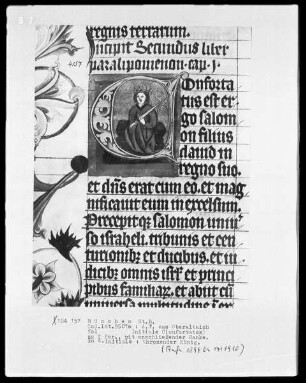 regnis terrarum.
Incipit Secundus liber
paralipomenon. cap. j.
Conforta
tus est er
go salom
on filius
dauid in
regno suo.
et dn̄s erat cum eo. et mag
nificauit eum in excelsum.
Precepitqꝫ salomon uniu
so israheli. tribunis et cen
turionibꝫ et ducibus. et iu
dicibꝫ omnis isrł et princi
pibus familiarꝫ. et abiit cū
uniuersa multitudine
X 104 157 München St.B.
Cod.lat.
aus Oberaltaich
Initiale C(onfortatus)
mit anschließender Ranke.
Initiale : thronender König.